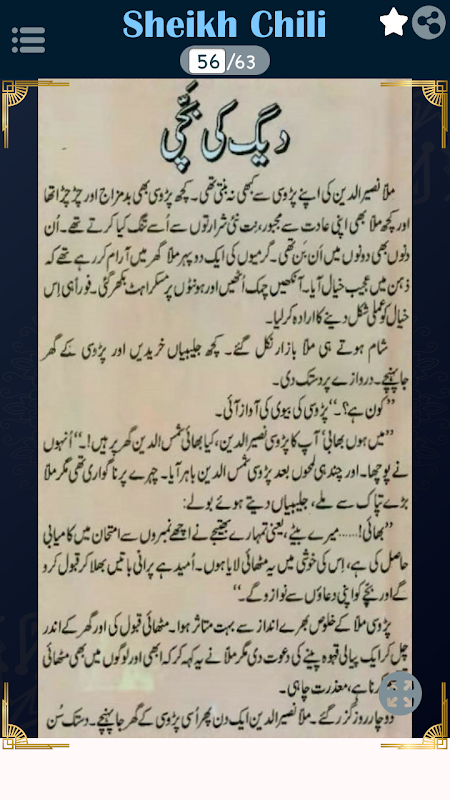 Sheikh Chili
56/63
دیگ کی بچّی
ملا نصیر الدین کی اپنے پڑوسی سے کبھی نہ بنتی تھی۔ کچھ پڑوسی بھی بدمزاج اور چڑچڑا تھا
اور کچھ ملا بھی اپنی عادت سے مجبور، نِت نئی شرارتوں سے اُسے تنگ کیا کرتے تھے۔ اُن
دنوں بھی دونوں میں اَن بَن تھی۔ گرمیوں کی ایک دوپہر ملا گھر میں آرام کر رہے تھے کہ
ذہن میں عجیب خیال آیا۔ آنکھیں چمک اُٹھیں اور ہونٹوں پر مسکراہٹ بکھر گئی۔ فوراً ہی اِس
خیال کو عملی شکل دینے کا ارادہ کر لیا۔
شام ہوتے ہی ملا بازار نکل گئے۔ کچھ جلیبیاں خریدیں اور پڑوسی کے گھر
جا پہنچے۔ دروازے پر دستک دی۔
”کون ہے؟۔“ پڑوسی کی بیوی کی آواز آئی۔
”میں ہوں بھابی! آپ کا پڑوسی نصیر الدین، کیا بھائی شمس الدین گھر پر ہیں!۔“ اُنہوں
نے پوچھا۔ اور چند ہی لمحوں بعد پڑوسی شمس الدین باہر آیا۔ چہرے پر ناگواری تھی مگر ملا
بڑے تپاک سے ملے، جلیبیاں دیتے ہوئے بولے:
”بھائی!...... میرے بیٹے، یعنی تمہارے بھتیجے نے اچھے نمبروں سے امتحان میں کامیابی
حاصل کی ہے، اِس کی خوشی میں یہ مٹھائی لایا ہوں۔ اُمید ہے پرانی باتیں بھلا کر قبول کرو
گے اور بچّے کو اپنی دعاؤں سے نوازو گے۔“
پڑوسی ملا کے خلوص بھرے انداز سے بہت متاثر ہوا۔ مٹھائی قبول کی اور گھر کے اندر
چل کر ایک پیالی قہوہ پینے کی دعوت دی مگر ملا نے یہ کہہ کر کہ ابھی اور لوگوں میں بھی مٹھائی
رنا ہے، معذرت چاہی۔
دو چار روز گُزر گئے۔ ملا نصیر الدین ایک دن پھر اُسی پڑوسی کے گھر جا پہنچے۔ دستک سُن